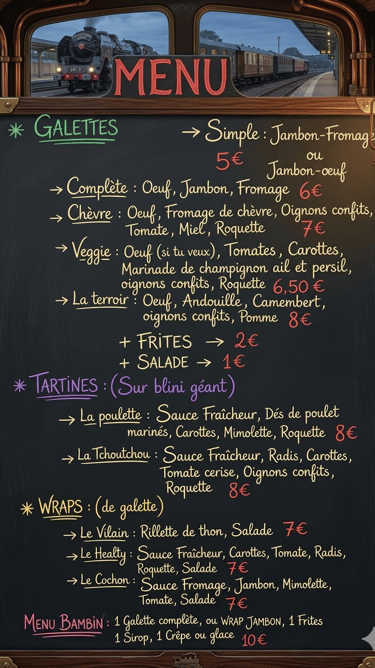 MENU
* GALETTES
→ Simple : Jambon-Fromage
5€ ou
Jambon-oeuf
→ Complète : Oeuf, Jambon, Fromage 6€
→ Chèvre : Oeuf, Fromage de chèvre, Oignons confits,
Tomate, Miel, Roquette 7€
→ Veggie : Oeuf (si tu veux), Tomates, Carottes,
Marinade de champignon ail et persil,
oignons confits, Roquette 6,50 €
→ La terroir : Oeuf, Andouille, Camembert,
oignons confits, Pomme 8€
+ FRITES → 2€
+ SALADE → 1€
* TARTINES : (Sur blini géant)
→ La poulette : Sauce Fraîcheur, Dés de poulet
marinés, Carottes, Mimolette, Roquette 8€
→ La Tchoutchou : Sauce Fraîcheur, Radis, Carottes,
Tomate cerise, Oignons confits,
Roquette 8€
* WRAPS : (de galette)
→ Le Vilain : Rillette de thon, Salade 7€
→ Le Healty : Sauce Fraîcheur, Carottes, Tomate, Radis,
Roquette, Salade 7€
→ Le Cochon : Sauce Fromage, Jambon, Mimolette,
Tomate, Salade 7€
MENU BAMBIN : 1 Galette complète, ou WRAP JAMBON, 1 Frites
1 Sirop, 1 Crêpe ou glace 10€